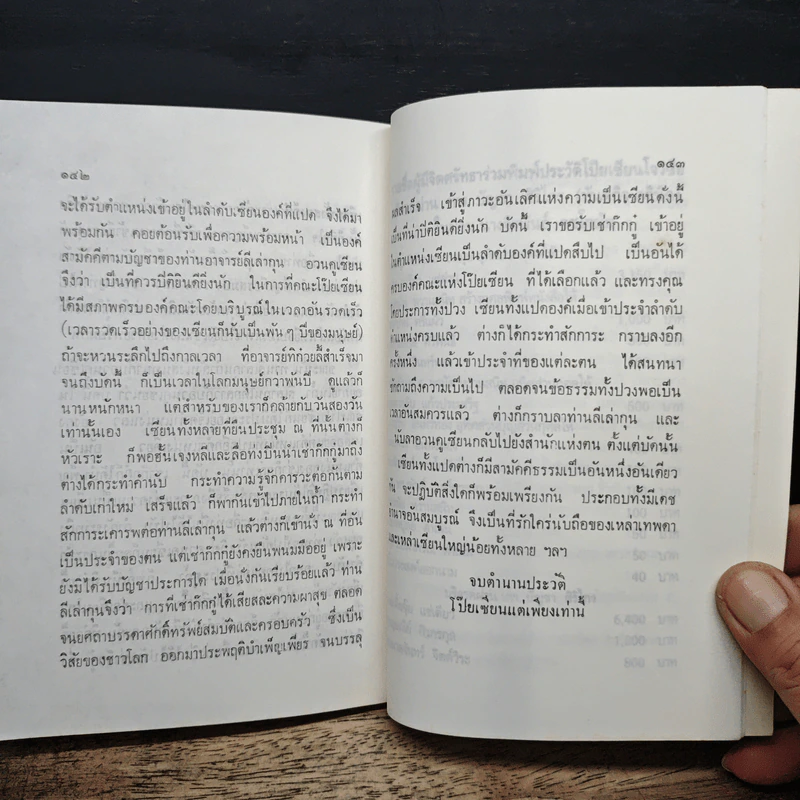 ๑๔๒
จะได้รับตำแหน่งเข้าอยู่ในลำดับเซียนองค์ที่แปด จึงได้มา
พร้อมกัน คอยต้อนรับเพื่อความพร้อมหน้า เป็นองค์
สามัคคีตามบัญชาของท่านอาจารย์ลีเล่ากุน อวนคูเซียน
จึงว่า เป็นที่ควรปีติยินดียิ่งนัก ในการที่คณะโป๊ยเซียน
ได้มีสภาพครบองค์คณะโดยบริบูรณ์ในเวลาอันรวดเร็ว
(เวลารวดเร็วอย่างของเซียนก็นับเป็นพัน ๆ ปีของมนุษย์)
ถ้าจะหวนระลึกไปถึงกาลเวลา ที่อาจารย์ทิก๋วยลีสำเร็จมา
จนถึงบัดนี้ ก็เป็นเวลาในโลกมนุษย์กว่าพันปี ดูแล้วก็
นานหนักหนา แต่สำหรับของเราก็คล้ายกับวันสองวัน
เท่านั้นเอง เซียนทั้งหลายที่ยืนประชุม ณ ที่นั้นต่างก็
หัวเราะ ก็พอฮั้นเจงหลีและลือทงปินนำเช่าก๊กกู๋มาถึง
ต่างได้กระทำคำนับ กระทำความรู้จักคารวะต่อกันตาม
ลำดับเก่าใหม่ เสร็จแล้ว ก็พากันเข้าไปภายในถ้ำ กระทำ
สักการะเคารพต่อท่านลีเล่ากุน แล้วต่างก็เข้านั่ง ณ ที่อัน
เป็นประจำของตน แต่เช่าก๊กกู๋ยังคงยืนพนมมืออยู่ เพราะ
ยังมิได้รับบัญชาประการใด เมื่อนั่งกันเรียบร้อยแล้ว ท่าน
ลีเล่ากุนจึงว่า การที่เช่าก๊กกู๋ได้เสียสละความผาสุข ตลอด
จนยศถาบรรดาศักดิ์ทรัพย์สมบัติและครอบครัว ซึ่งเป็น
วิสัยของชาวโลก ออกมาประพฤติบำเพ็ญเพียร จนบรรลุ
๑๔๓
ผลสำเร็จ เข้าสู่ภาวะอันเลิศแห่งความเป็นเซียนดั่งนี้
เป็นที่น่าปีติยินดียิ่งนัก บัดนี้ เราขอรับเช่าก๊กกู๋ เข้าอยู่
ในตำแหน่งเซียนเป็นลำดับองค์ที่แปดสืบไป เป็นอันได้
ครบองค์คณะแห่งโป๊ยเซียน ที่ได้เลือกแล้ว และทรงคุณ
โดยประการทั้งปวง เซียนทั้งแปดองค์เมื่อเข้าประจำลำดับ
ตำแหน่งครบแล้ว ต่างก็ได้กระทำสักการะ กราบลงอีก
ครั้งหนึ่ง แล้วเข้าประจำที่ของแต่ละตน ได้สนทนา
ซักถามถึงความเป็นไป ตลอดจนข้อธรรมทั้งปวงพอเป็น
เวลาอันสมควรแล้ว ต่างก็กราบลาท่านลีเล่ากุน และ
คำนับลาอวนคูเซียนกลับไปยังสำนักแห่งตน ตั้งแต่บัดนั้น
เซียนทั้งแปดต่างก็มีสามัคคีธรรมเป็นอันหนึ่งอันเดียว
กัน จะปฏิบัติสิ่งใดก็พร้อมเพรียงกัน ประกอบทั้งมีเดช
อำนาจอันสมบูรณ์ จึงเป็นที่รักใคร่นับถือของเหล่าเทพดา
และเหล่าเซียนใหญ่น้อยทั้งหลาย ฯลฯ
จบตำนานประวัติ
โป๊ยเซียนแต่เพียงเท่านี้